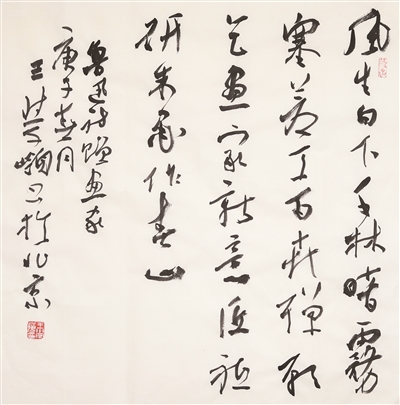 風生白下千林暗霧
塞蒼天百卉殫願
乞畫家新意匠祗
研朱墨作春山
魯迅詩贈畫家
庚子春月
王学嶺书於北京